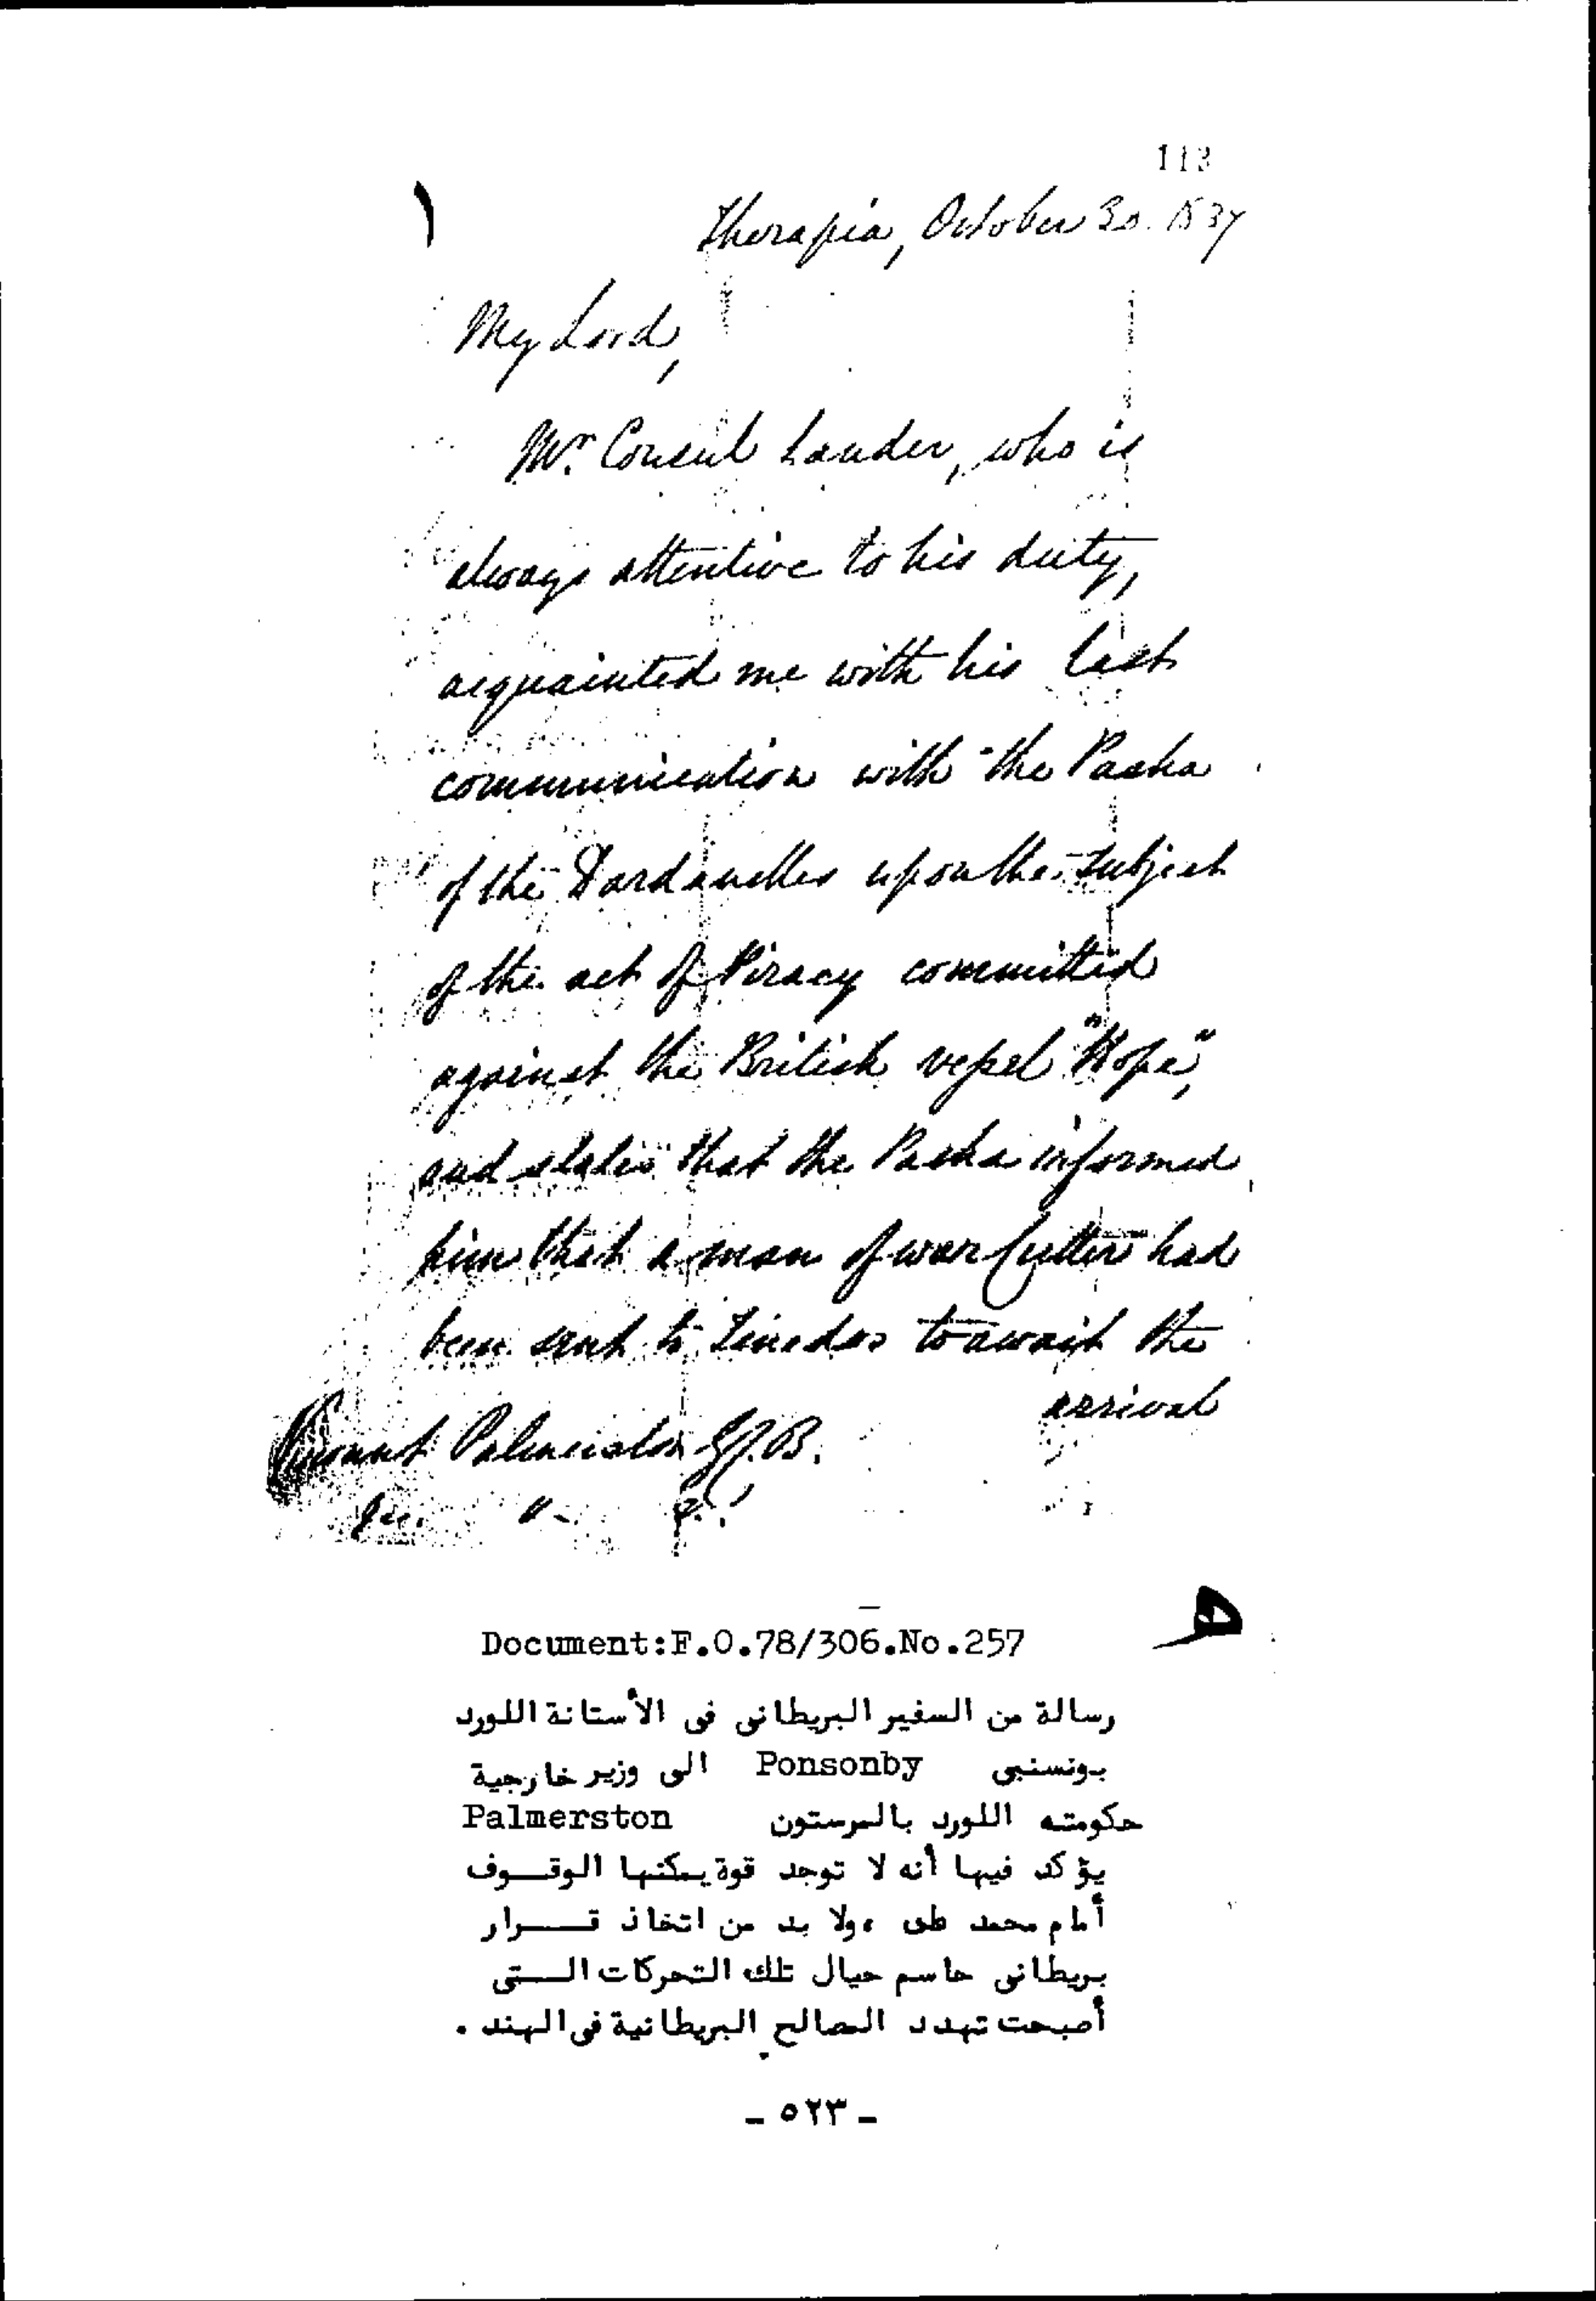 113
١
Therapia, October 30. 1837
My Lord,
Mr. Consul Lander, who is
always attentive to his duty,
acquainted me with his last
communication with the Pasha
of the Dardanelles upon the subject
of the act of Piracy committed
against the British vessel "Hope",
and states that the Pasha informed
him that a man of war Cutter had
been sent to Tenedos to await the
arrival
Viscount Palmerston G.C.B.
هـ
Document:F.O.78/306.No.257
رسالة من السفير البريطانى فى الأستانة اللورد
بونسنبى Ponsonby الى وزير خارجية
حكومته اللورد بالمرستون Palmerston
يؤكد فيها أنه لا توجد قوة يمكنها الوقـــوف
أمام محمد على ، ولا بد من اتخاذ قـــرار
بريطانى حاسم حيال تلك التحركات الـــتى
أصبحت تهدد المصالح البريطانية فى الهند .
- ٥٢٣ -